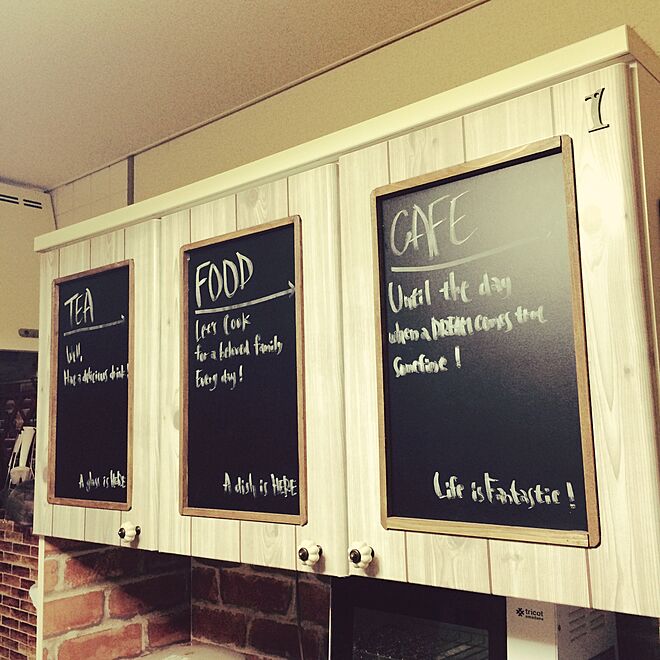 TEA
Well,
Have a delicious drink!
A glass is HERE
FOOD
Let's Cook
for a beloved family
Every day!
A dish is HERE
CAFE
Until the day
when a DREAM comes true
Sometime!
Life is Fantastic!
7
tricot